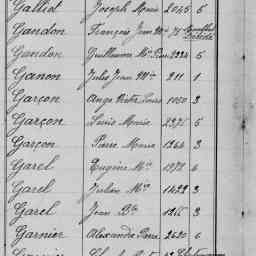 Galliot Joseph Marie 2045 5
Gandon François Jean M
Gandon Guillaume M. Pierre 2924 5
Ganon Jules Jean M 211 1
Garçon Ange Victor Louis 1050 3
Garçon Louis Marie 2375 5
Garçon Pierre Marie 1264 3
Garel Eugène M. 1978 6
Garel Julien M. 1422 3
Garel Jean B. 1215 3
Garnier Alexandre Pierre 2620 6